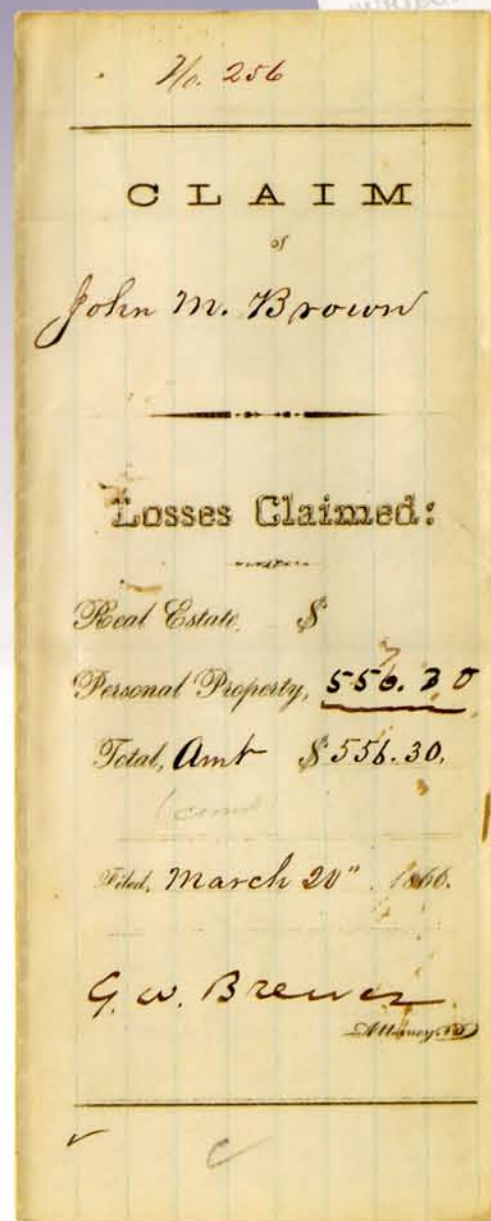 No. 256
CLAIM
of
John M. Brown
Losses Claimed:
Real Estate, $
Personal Property, 556.30
Total, Amt $556.30.
Filed, March 20" 1866.
G. W. Brewer
Attorney
C